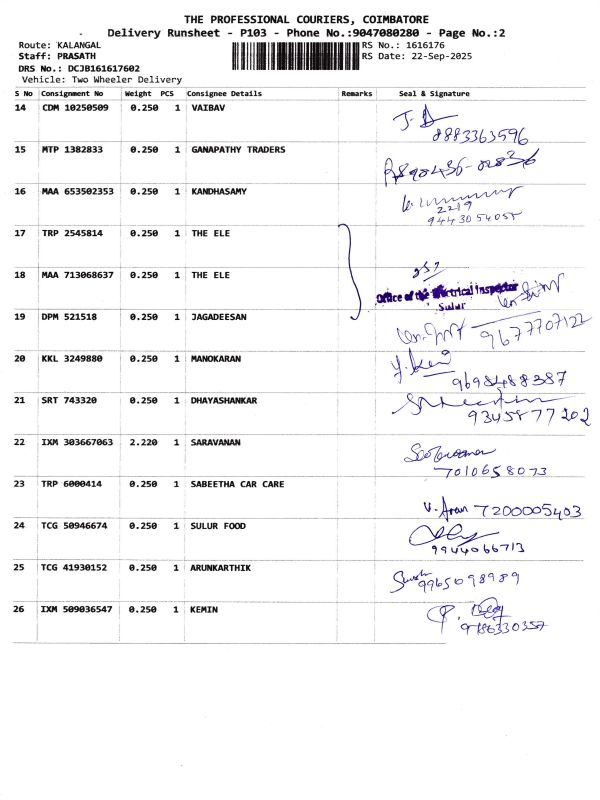 THE PROFESSIONAL COURIERS, COIMBATORE
Delivery Runsheet - P103 - Phone No.:9047080280 - Page No.:2
Route: KALANGAL RS No.: 1616176
Staff: PRASATH RS Date: 22-Sep-2025
DRS No.: DCJB161617602
Vehicle: Two Wheeler Delivery
S No Consignment No Weight PCS Consignee Details Remarks Seal & Signature
14 CDM 10250509 0.250 1 VAIBAV
8883363596
15 MTP 1382833 0.250 1 GANAPATHY TRADERS
16 MAA 653502353 0.250 1 KANDHASAMY
2219
9443054055
17 TRP 2545814 0.250 1 THE ELE
18 MAA 713068637 0.250 1 THE ELE
Office of the Electrical Inspector
Sulur
19 DPM 521518 0.250 1 JAGADEESAN
9677707122
20 KKL 3249880 0.250 1 MANOKARAN
9698488387
21 SRT 743320 0.250 1 DHAYASHANKAR
9345877202
22 IXM 303667063 2.220 1 SARAVANAN
7010658073
23 TRP 6000414 0.250 1 SABEETHA CAR CARE
7200005403
24 TCG 50946674 0.250 1 SULUR FOOD
9944066713
25 TCG 41930152 0.250 1 ARUNKARTHIK
9965098989
26 IXM 509036547 0.250 1 KEMIN
9786330357